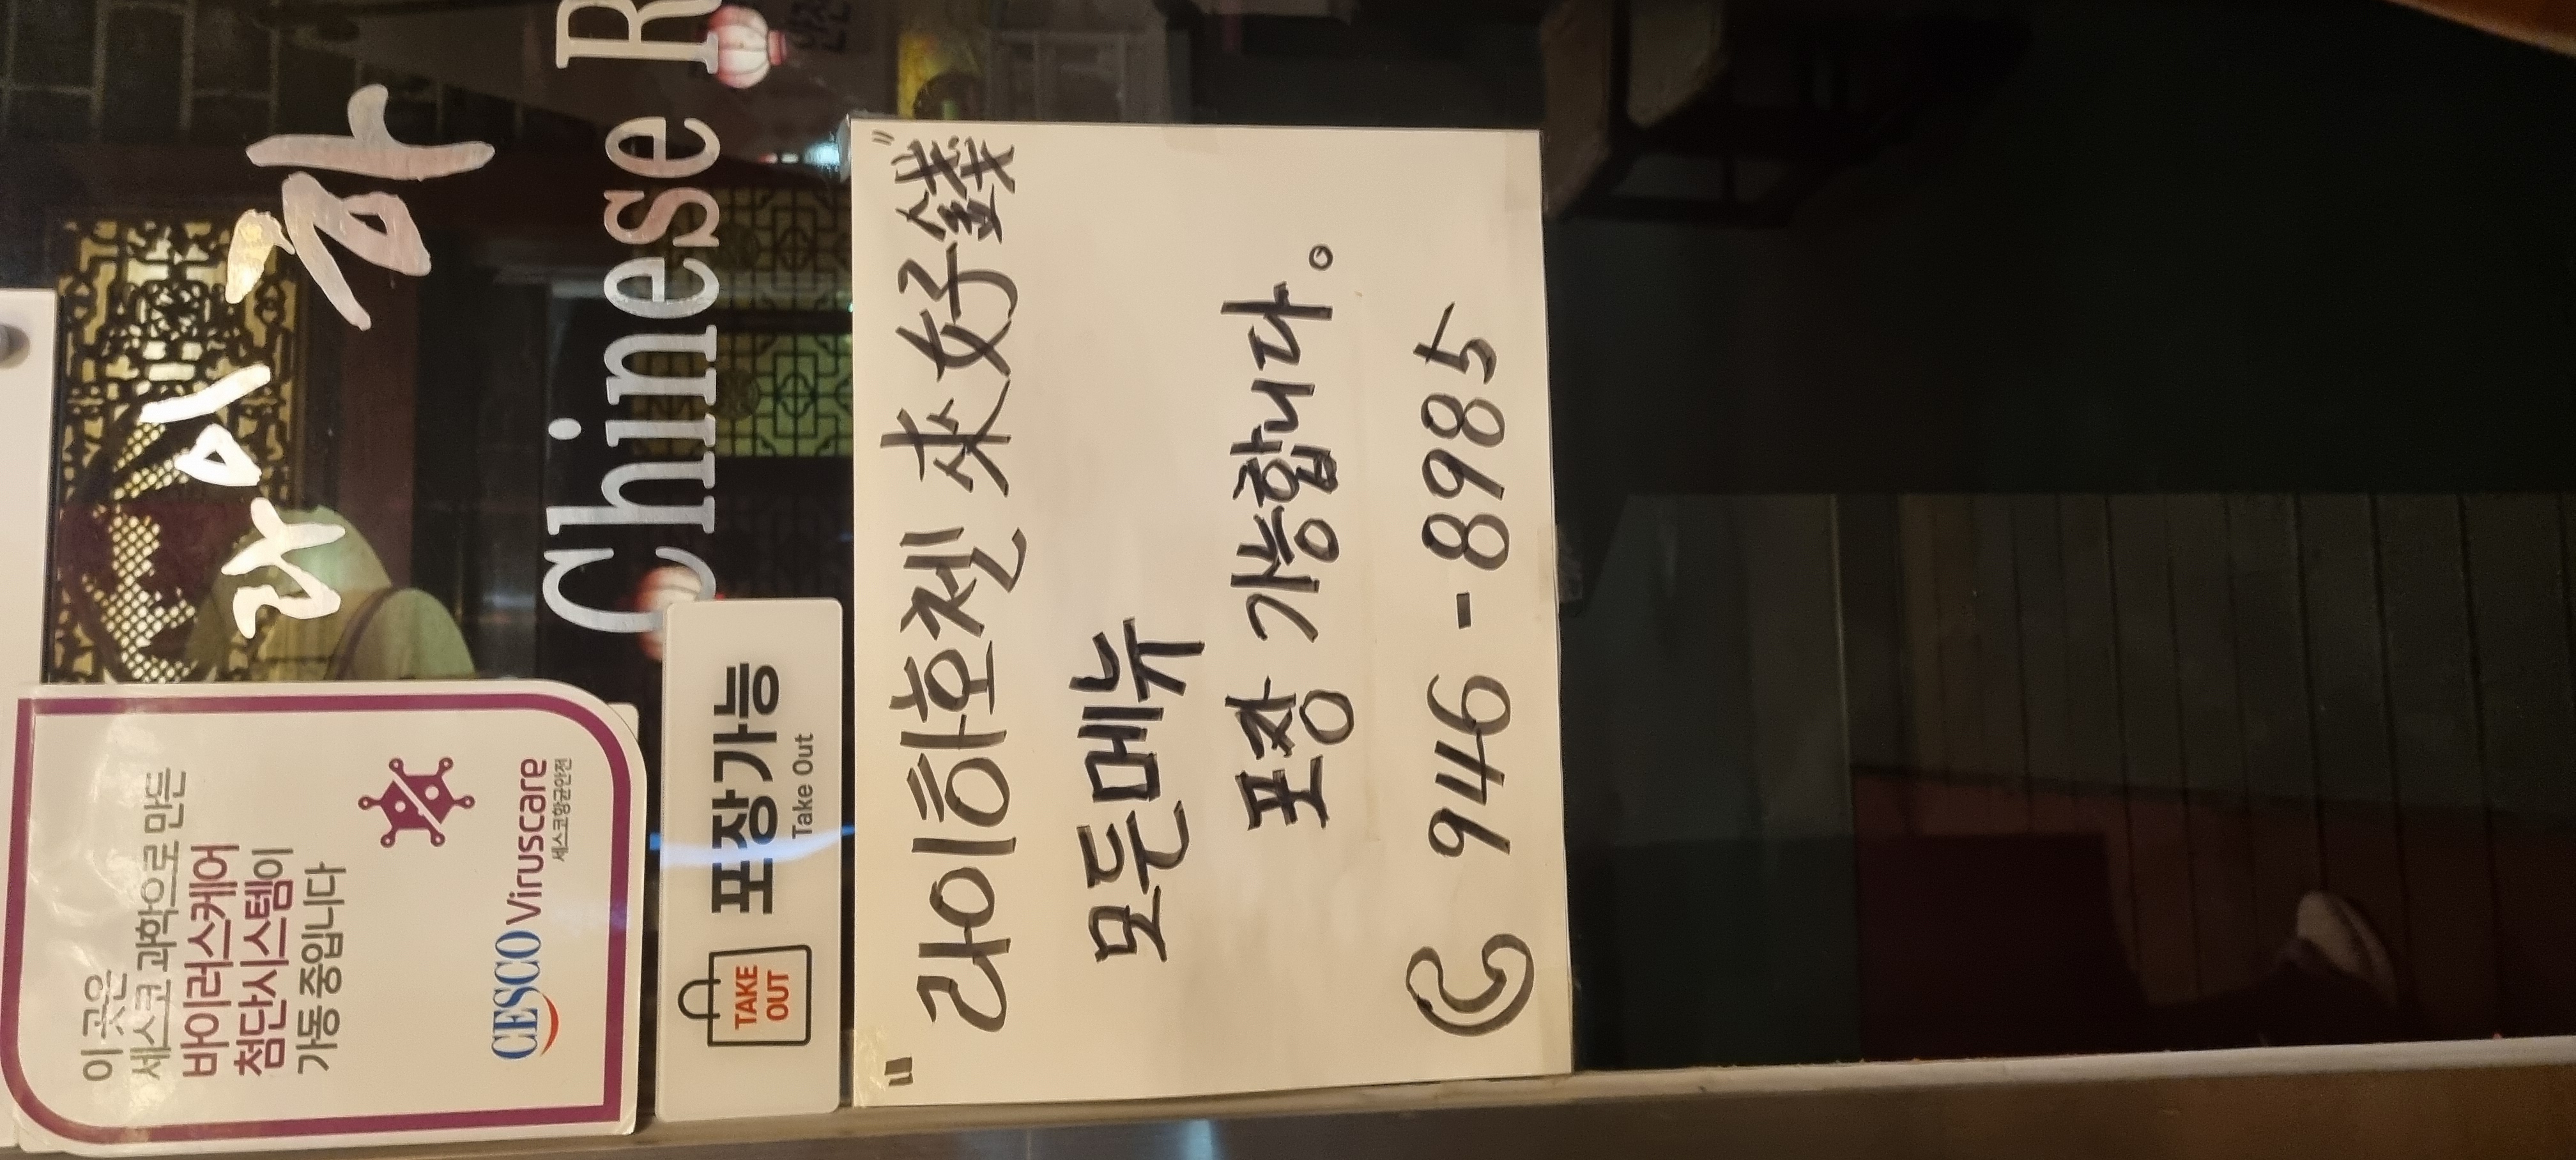 라이 하
Chinese R
이 곳은
세스코 과학으로 만든
바이러스케어
첨단시스템이
가동 중입니다
CESCO Viruscare
세스코항균안전
TAKE
OUT
포장가능
Take Out
"라이하호첸 來好錢"
모든메뉴
포장 가능합니다.
946-8985